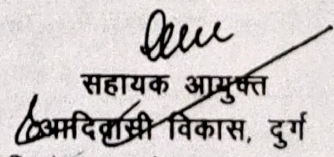 सहायक आयुक्त
आदिवासी विकास, दुर्ग